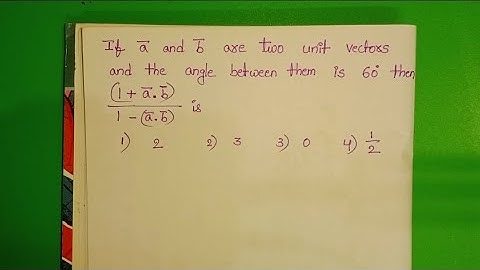 If a̅ and b̅ are two unit vectors
and the angle between them is 60° then
(1 + a̅.b̅) / 1 - (a̅.b̅) is
1) 2 2) 3 3) 0 4) 1/2